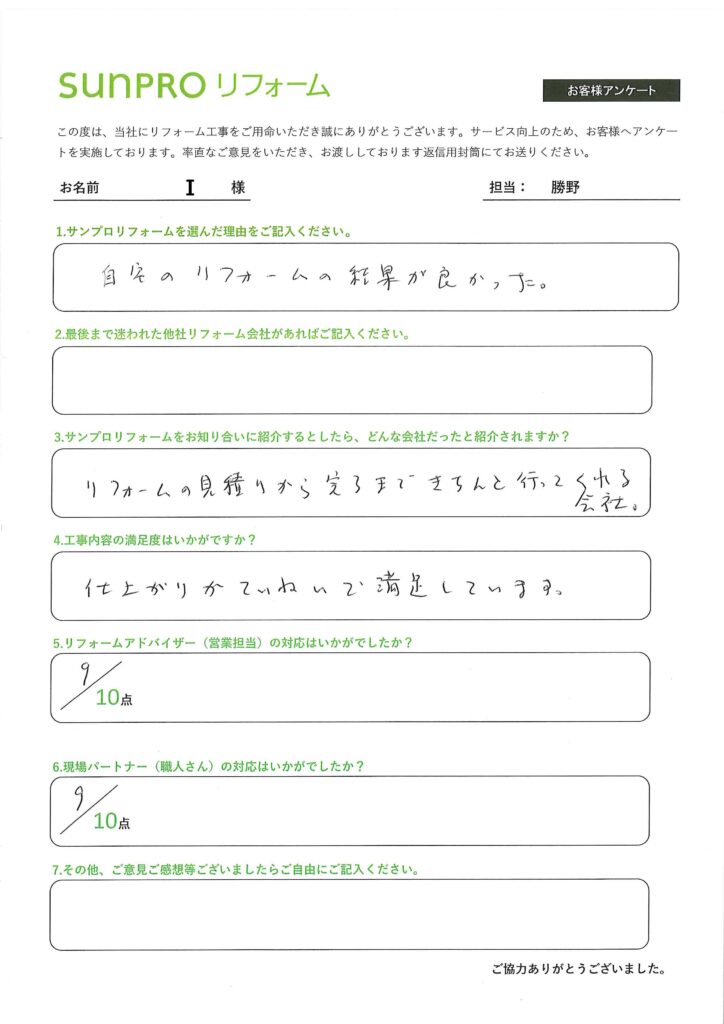 SUNPRO リフォーム
お客様アンケート
この度は、当社にリフォーム工事をご用命いただき誠にありがとうございます。サービス向上のため、お客様へアンケー
トを実施しております。率直なご意見をいただき、お渡ししております返信用封筒にてお送りください。
お名前 I 様 担当： 勝野
1.サンプロリフォームを選んだ理由をご記入ください。
自宅のリフォームの結果が良かった。
2.最後まで迷われた他社リフォーム会社があればご記入ください。
3.サンプロリフォームをお知り合いに紹介するとしたら、どんな会社だったと紹介されますか？
リフォームの見積りから完了まできちんと行ってくれる
会社。
4.工事内容の満足度はいかがですか？
仕上がりがていねいで満足しています。
5.リフォームアドバイザー（営業担当）の対応はいかがでしたか？
9/10点
6.現場パートナー（職人さん）の対応はいかがでしたか？
9/10点
7.その他、ご意見ご感想等ございましたらご自由にご記入ください。
ご協力ありがとうございました。